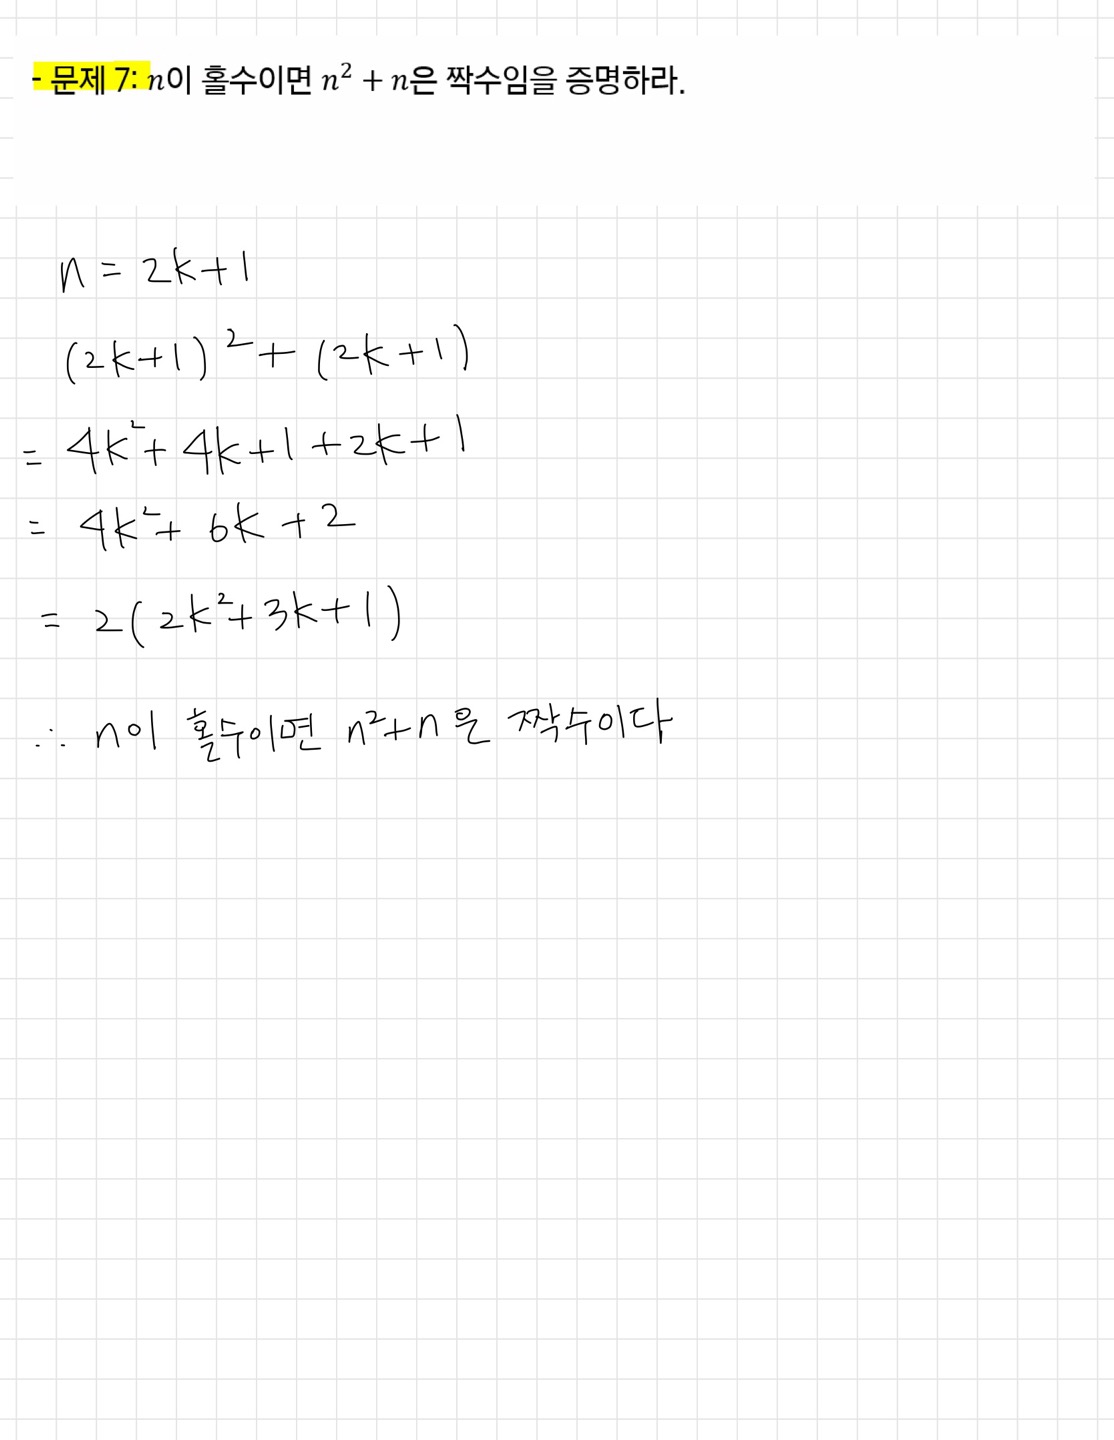 - 문제 7: n이 홀수이면 n² + n은 짝수임을 증명하라.
n = 2k+1
(2k+1)² + (2k+1)
= 4k²+ 4k+1 +2k+1
= 4k²+ 6k +2
= 2(2k²+3k+1)
∴ n이 홀수이면 n²+n은 짝수이다